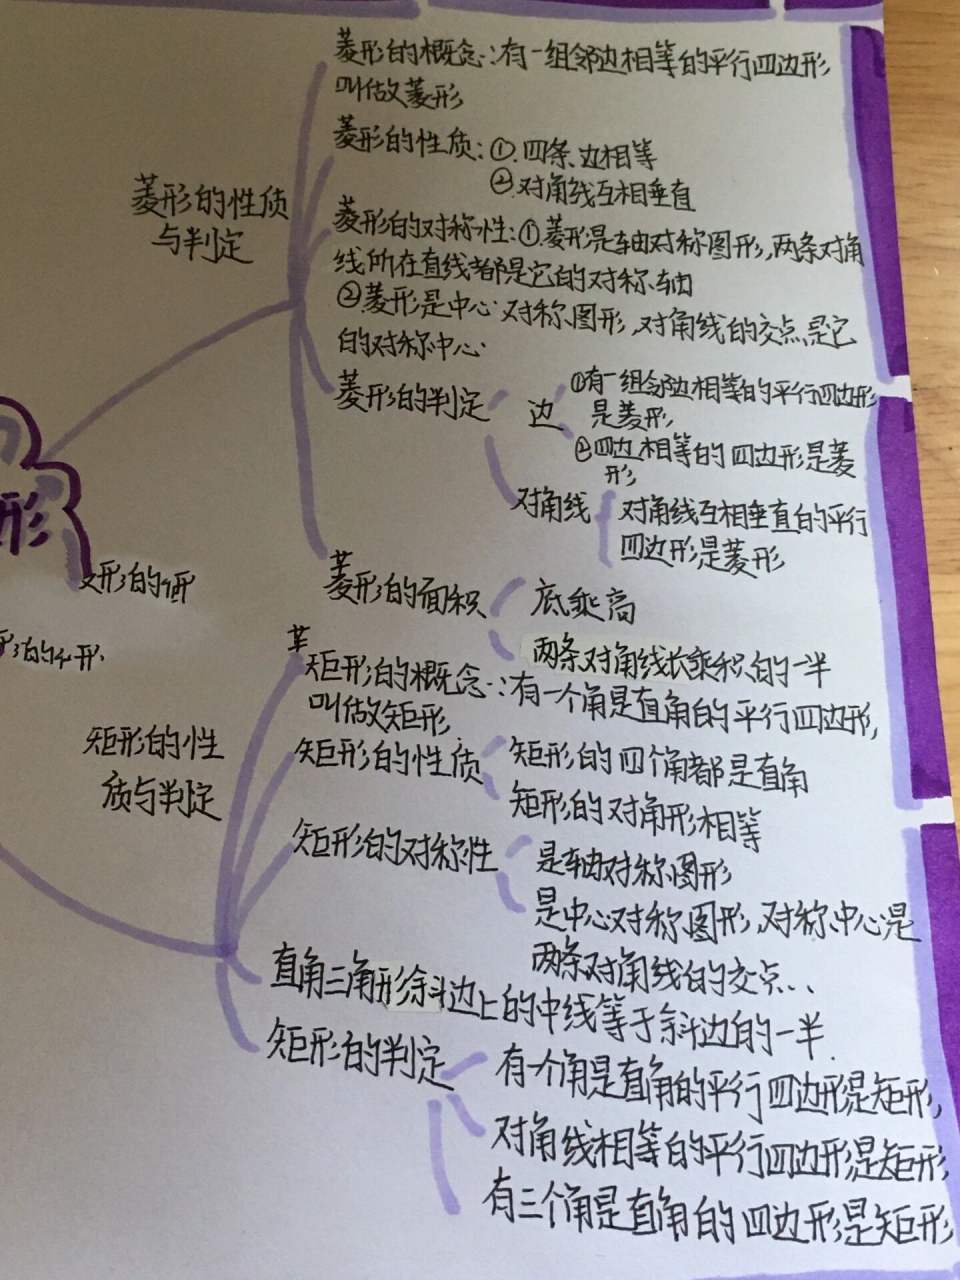 菱形的概念:有一组邻边相等的平行四边形
叫做菱形
菱形的性质:①.四条边相等
②对角线互相垂直
菱形的性质
与判定
菱形的对称性:①菱形是轴对称图形,两条对角
线所在直线都是它的对称轴
②菱形是中心对称图形,对角线的交点是它
的对称中心.
菱形的判定
边
①有一组邻边相等的平行四边形
是菱形,
②四边相等的四边形是菱
形,
对角线
对角线互相垂直的平行
四边形是菱形
形
菱形的面积
底乘高
两条对角线长乘积的一半
矩形的概念:有一个角是直角的平行四边形,
叫做矩形,
矩形的性
质与判定
矩形的性质
矩形的四个角都是直角
矩形的对角形相等
矩形的对称性
是轴对称图形
是中心对称图形,对称中心是
两条对角线的交点..
直角三角形斜边上的中线等于斜边的一半.
矩形的判定
有一个角是直角的平行四边形是矩形,
对角线相等的平行四边形是矩形
有三个角是直角的四边形是矩形